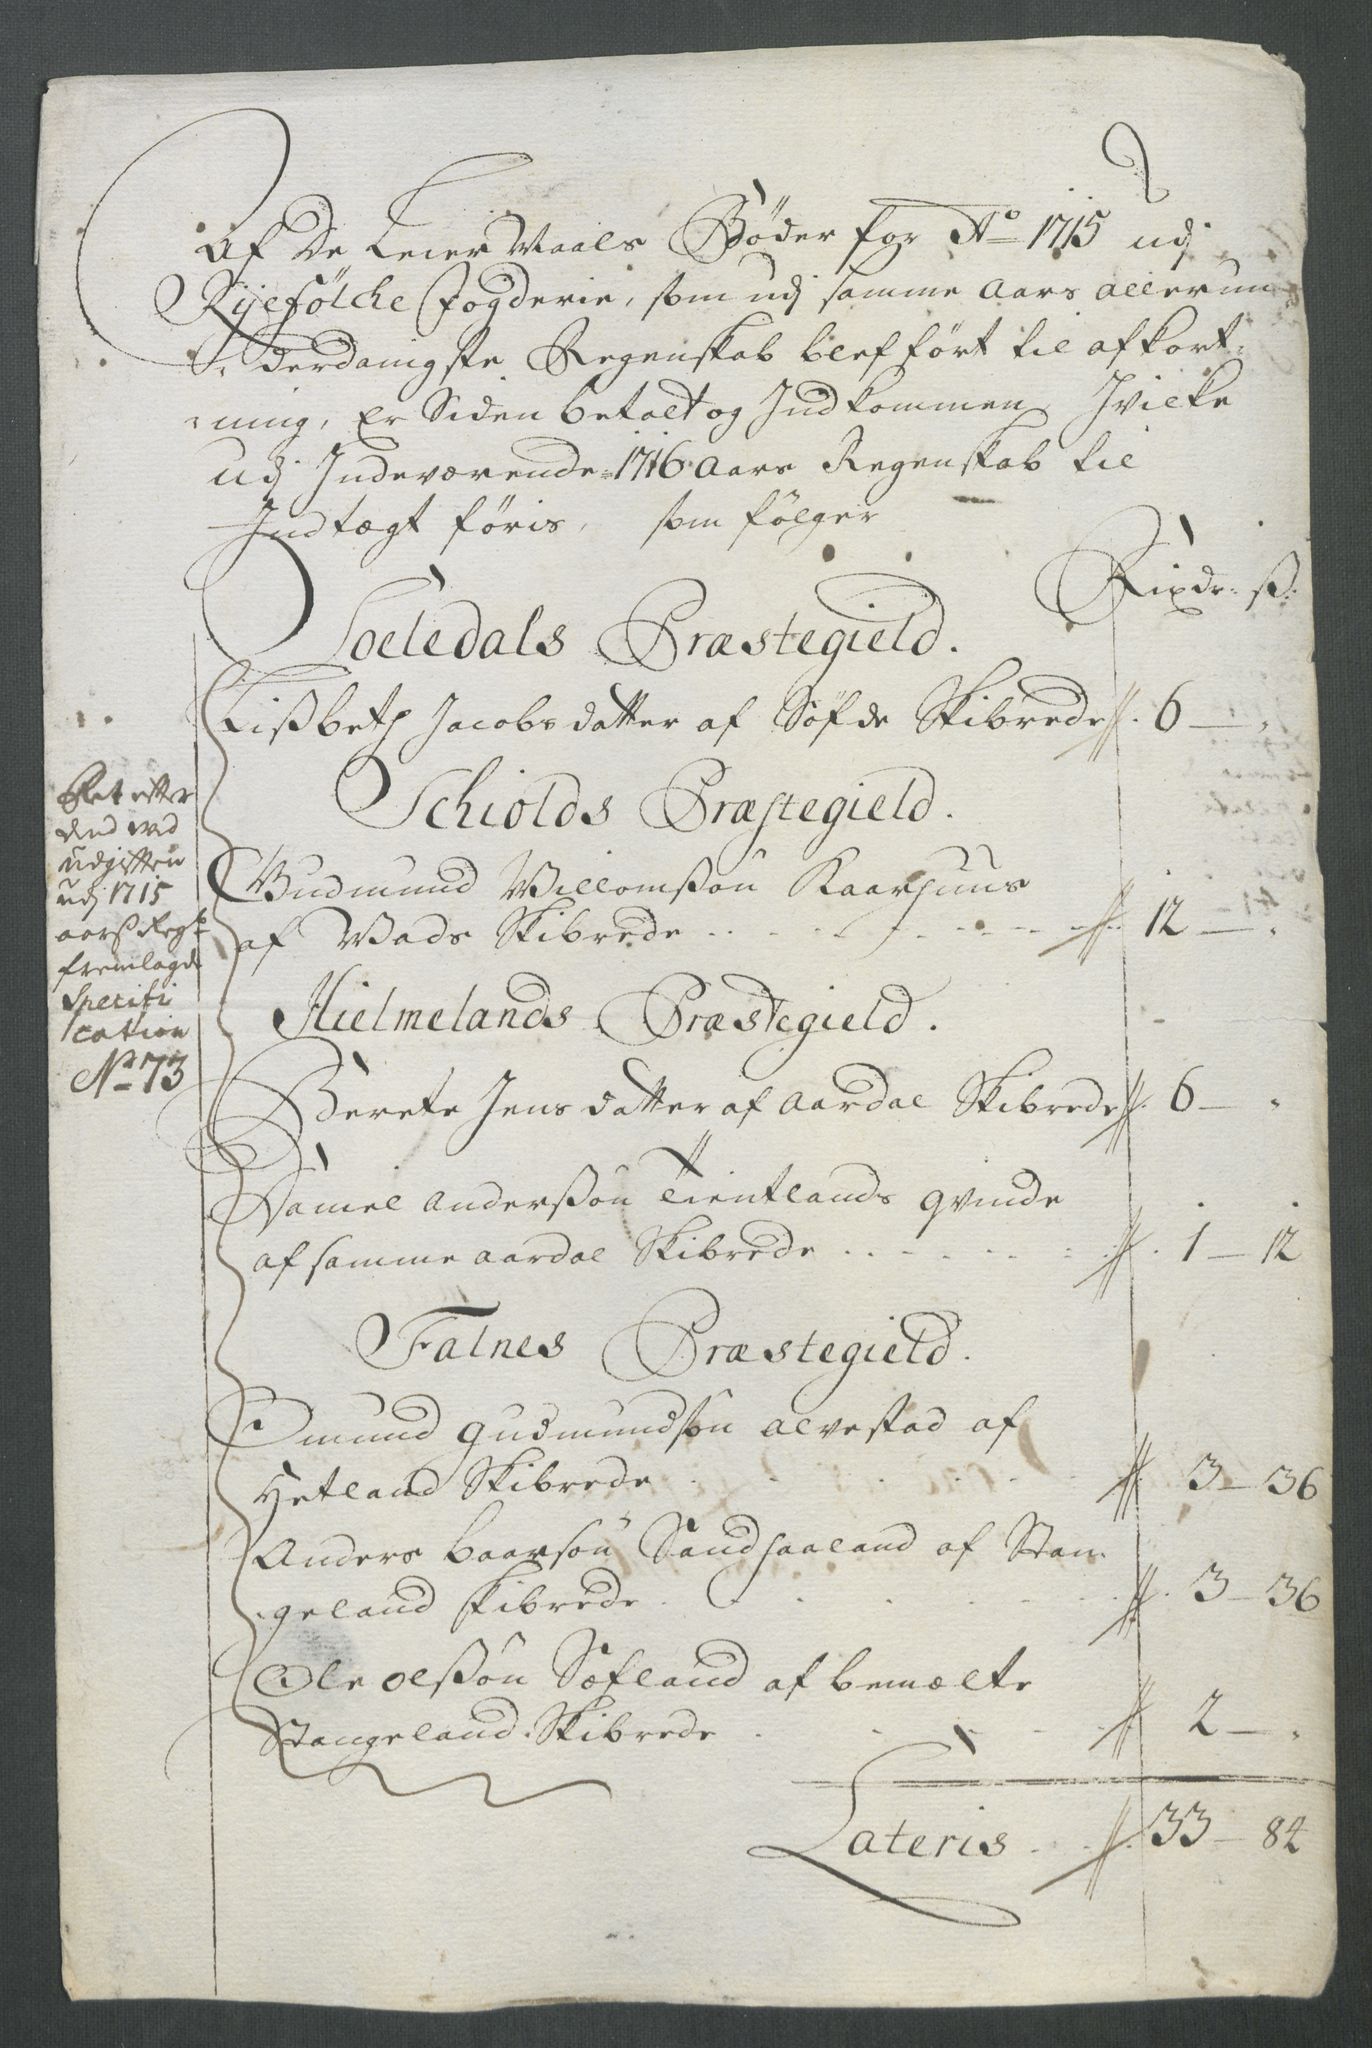 Af De Leier Maals Bøder for Ao 1715 udj
Ryefölche Fogderie, som udj samme Aars allerun-
derdanigste Regenskab blef ført til afkort-
ning, Er Siden betalt og Indkommen, Hvilke
udj Indeværende 1716 Aars Regenskab til
Indtægt føris, som følger
Rixdr: ß:
Soeledals Præstegield.
Lißbeth Jacobsdatter af Søfde Skibrede 6 —
Schiolds Præstegield.
Gudmund Willomßøn Kaarhuus
af Wads Skibrede 12 —
Hielmelands Præstegield.
Berete Jensdatter af Aardal Skibrede 6 —
Daniel Anderßøn Tientlands qvinde
af samme Aardal Skibrede 1 — 12
Falnes Præstegield.
Omund Gudmundsøn Alvestad af
Hetland Skibrede 3 — 36
Anders Baarsøn Sandhaaland af Stan-
geland Skibrede 3 — 36
Ole Olßøn Sæfland af bemælte
Stangeland Skibrede 2 —
Lateris 33 — 84
Ret efter
den ved
Udgiften
udj 1715
aarß Regsk:
fremlagde
Specifi
cation
No 73